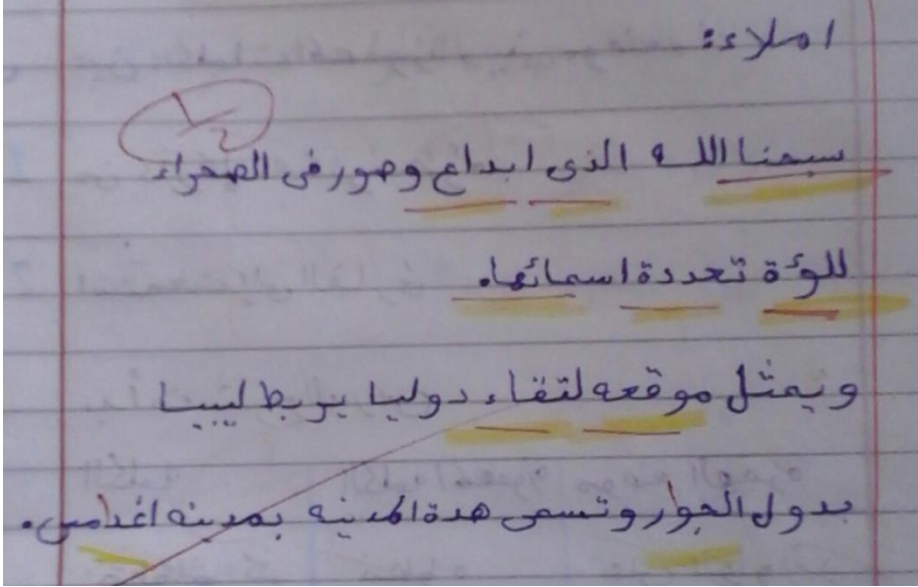 املاء:
سبحنا الله الذى ابداع وصور فى الصحراء
للوئة تعددة اسمائها.
ويمثل موقعه لتقاء دوليا يربط ليبيا
بدول الجوار وتسمى هدة المدينه بمدينه اغدامس.